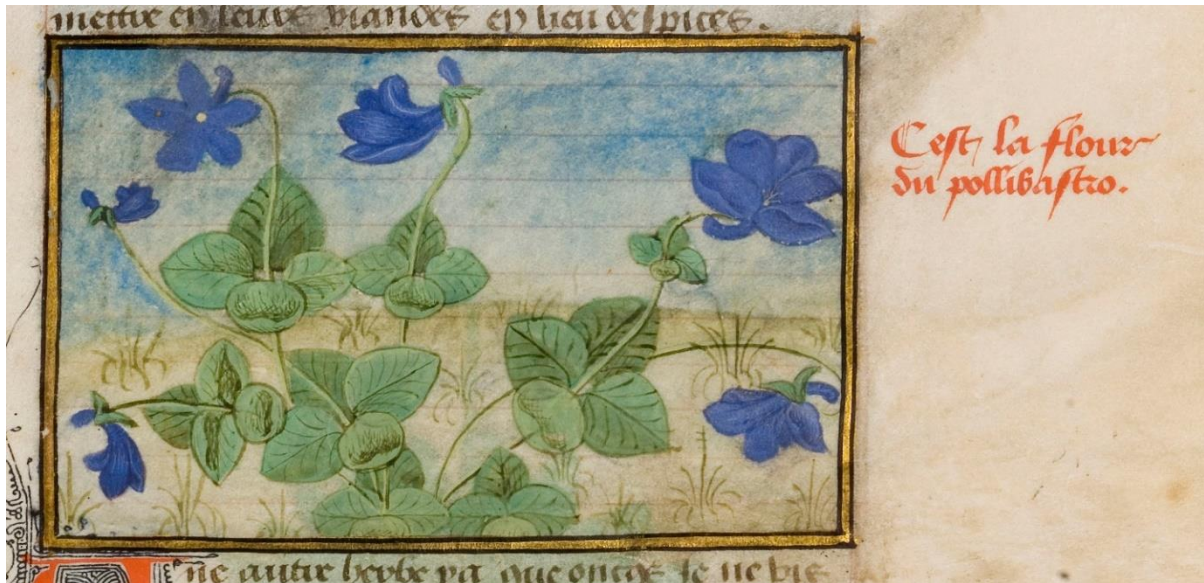 mettre en leurs viandes en lieu despices.
Cest la flour
du pollibastro.
ne autre herbe ya que onces je ne vis